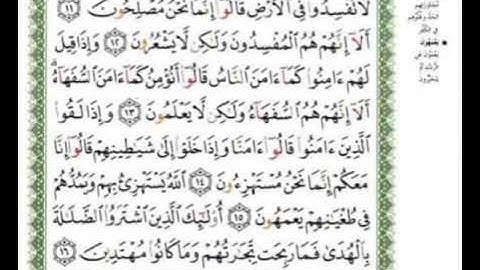 لَا تُفْسِدُوا۟ فِى ٱلْأَرْضِ قَالُوٓا۟ إِنَّمَا نَحْنُ مُصْلِحُونَ ١١
أَلَآ إِنَّهُمْ هُمُ ٱلْمُفْسِدُونَ وَلَـٰكِن لَّا يَشْعُرُونَ ١٢ وَإِذَا قِيلَ
لَهُمْ ءَامِنُوا۟ كَمَآ ءَامَنَ ٱلنَّاسُ قَالُوٓا۟ أَنُؤْمِنُ كَمَآ ءَامَنَ ٱلسُّفَهَآءُ ۗ
أَلَآ إِنَّهُمْ هُمُ ٱلسُّفَهَآءُ وَلَـٰكِن لَّا يَعْلَمُونَ ١٣ وَإِذَا لَقُوا۟
ٱلَّذِينَ ءَامَنُوا۟ قَالُوٓا۟ ءَامَنَّا وَإِذَا خَلَوْا۟ إِلَىٰ شَيَـٰطِينِهِمْ قَالُوٓا۟ إِنَّا
مَعَكُمْ إِنَّمَا نَحْنُ مُسْتَهْزِءُونَ ١٤ ٱللَّهُ يَسْتَهْزِئُ بِهِمْ وَيَمُدُّهُمْ
فِى طُغْيَـٰنِهِمْ يَعْمَهُونَ ١٥ أُو۟لَـٰٓئِكَ ٱلَّذِينَ ٱشْتَرَوُا۟ ٱلضَّلَـٰلَةَ
بِٱلْهُدَىٰ فَمَا رَبِحَت تِّجَـٰرَتُهُمْ وَمَا كَانُوا۟ مُهْتَدِينَ ١٦
يَعْمَهُونَ